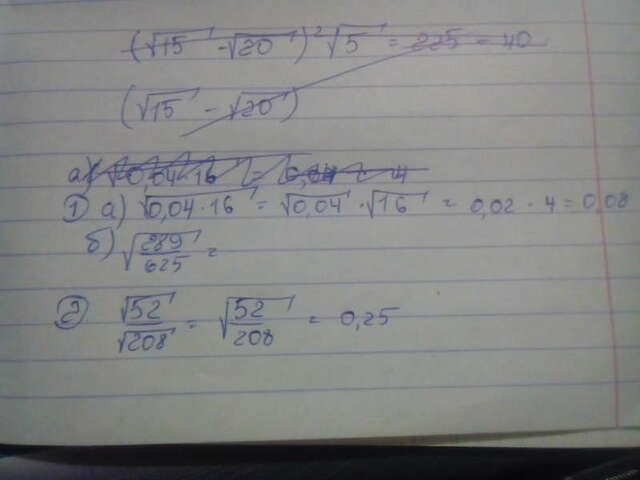 (√15 - √20)² √5 = 225 - 40
(√15 - √20)
а) √0,04·16 = 0,04 · 4
① а) √0,04·16 = √0,04 · √16 = 0,02 · 4 = 0,08
б) √289/625 =
② √52/√208 = √52/208 = 0,25